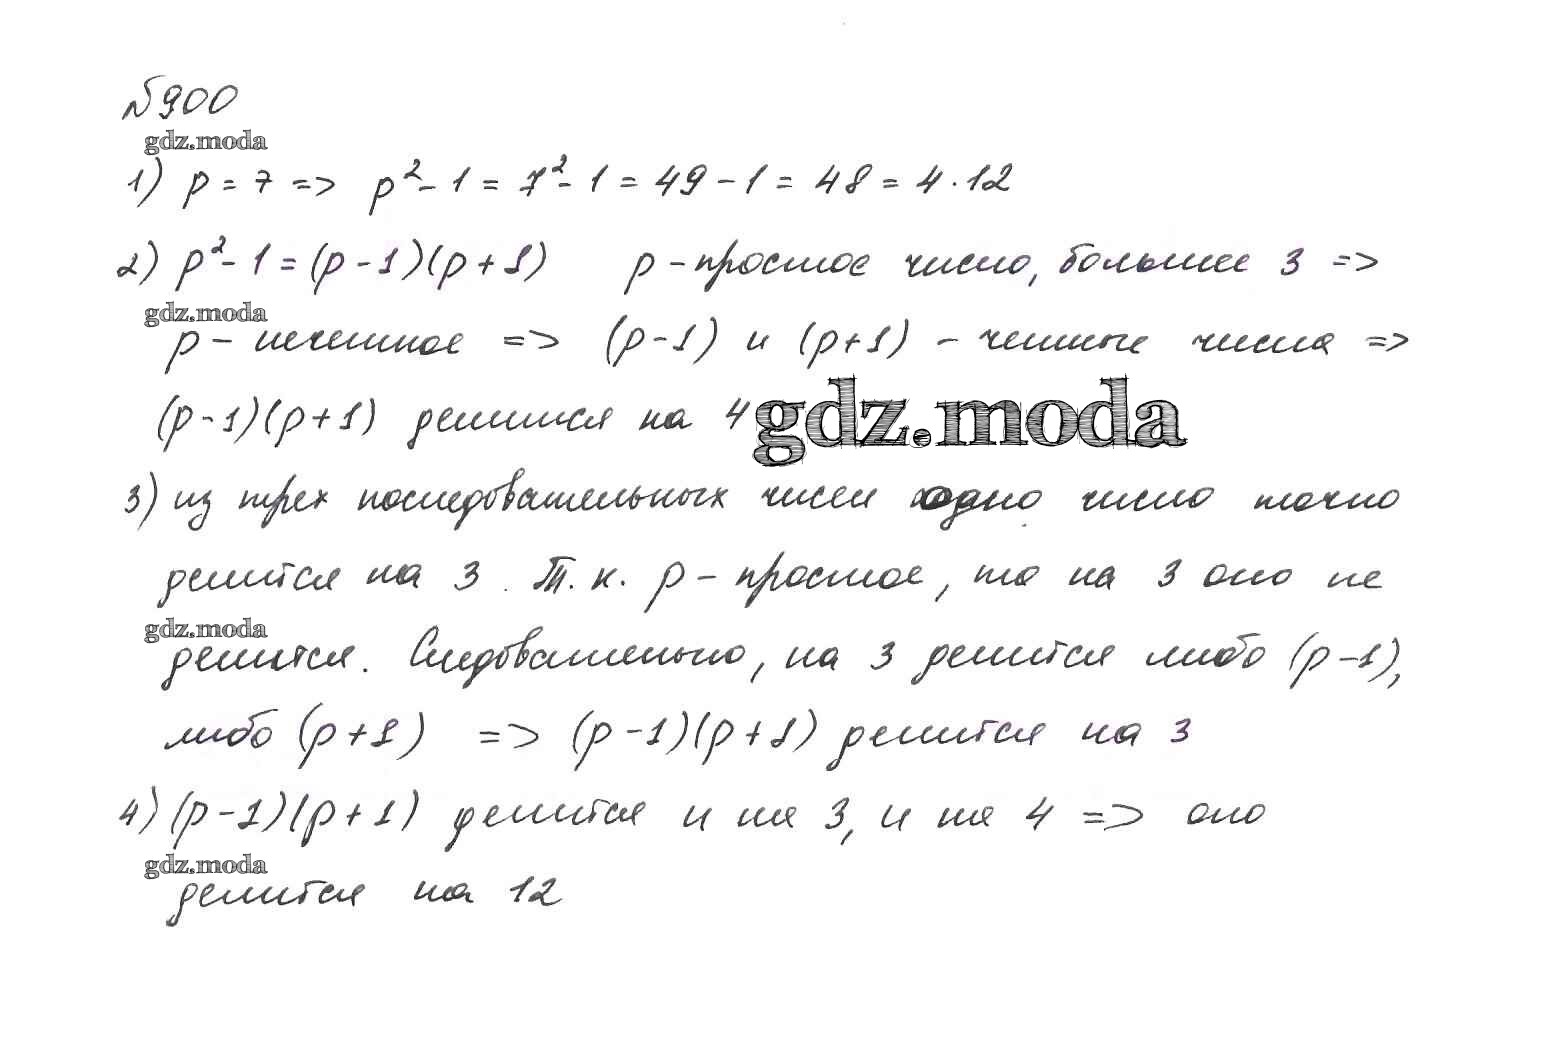 №900
gdz.moda
1) p = 7 => p² - 1 = 7² - 1 = 49 - 1 = 48 = 4 · 12
2) p² - 1 = (p - 1)(p + 1) p - простое число, большее 3 =>
gdz.moda
p - нечетное => (p - 1) и (p + 1) - четные числа =>
(p - 1)(p + 1) делится на 4
gdz.moda
3) из трех последовательных чисел одно число точно
делится на 3. Т.к. p - простое, то на 3 оно не
gdz.moda
делится. Следовательно, на 3 делится либо (p - 1),
либо (p + 1) => (p - 1)(p + 1) делится на 3
4) (p - 1)(p + 1) делится и на 3, и на 4 => оно
gdz.moda
делится на 12